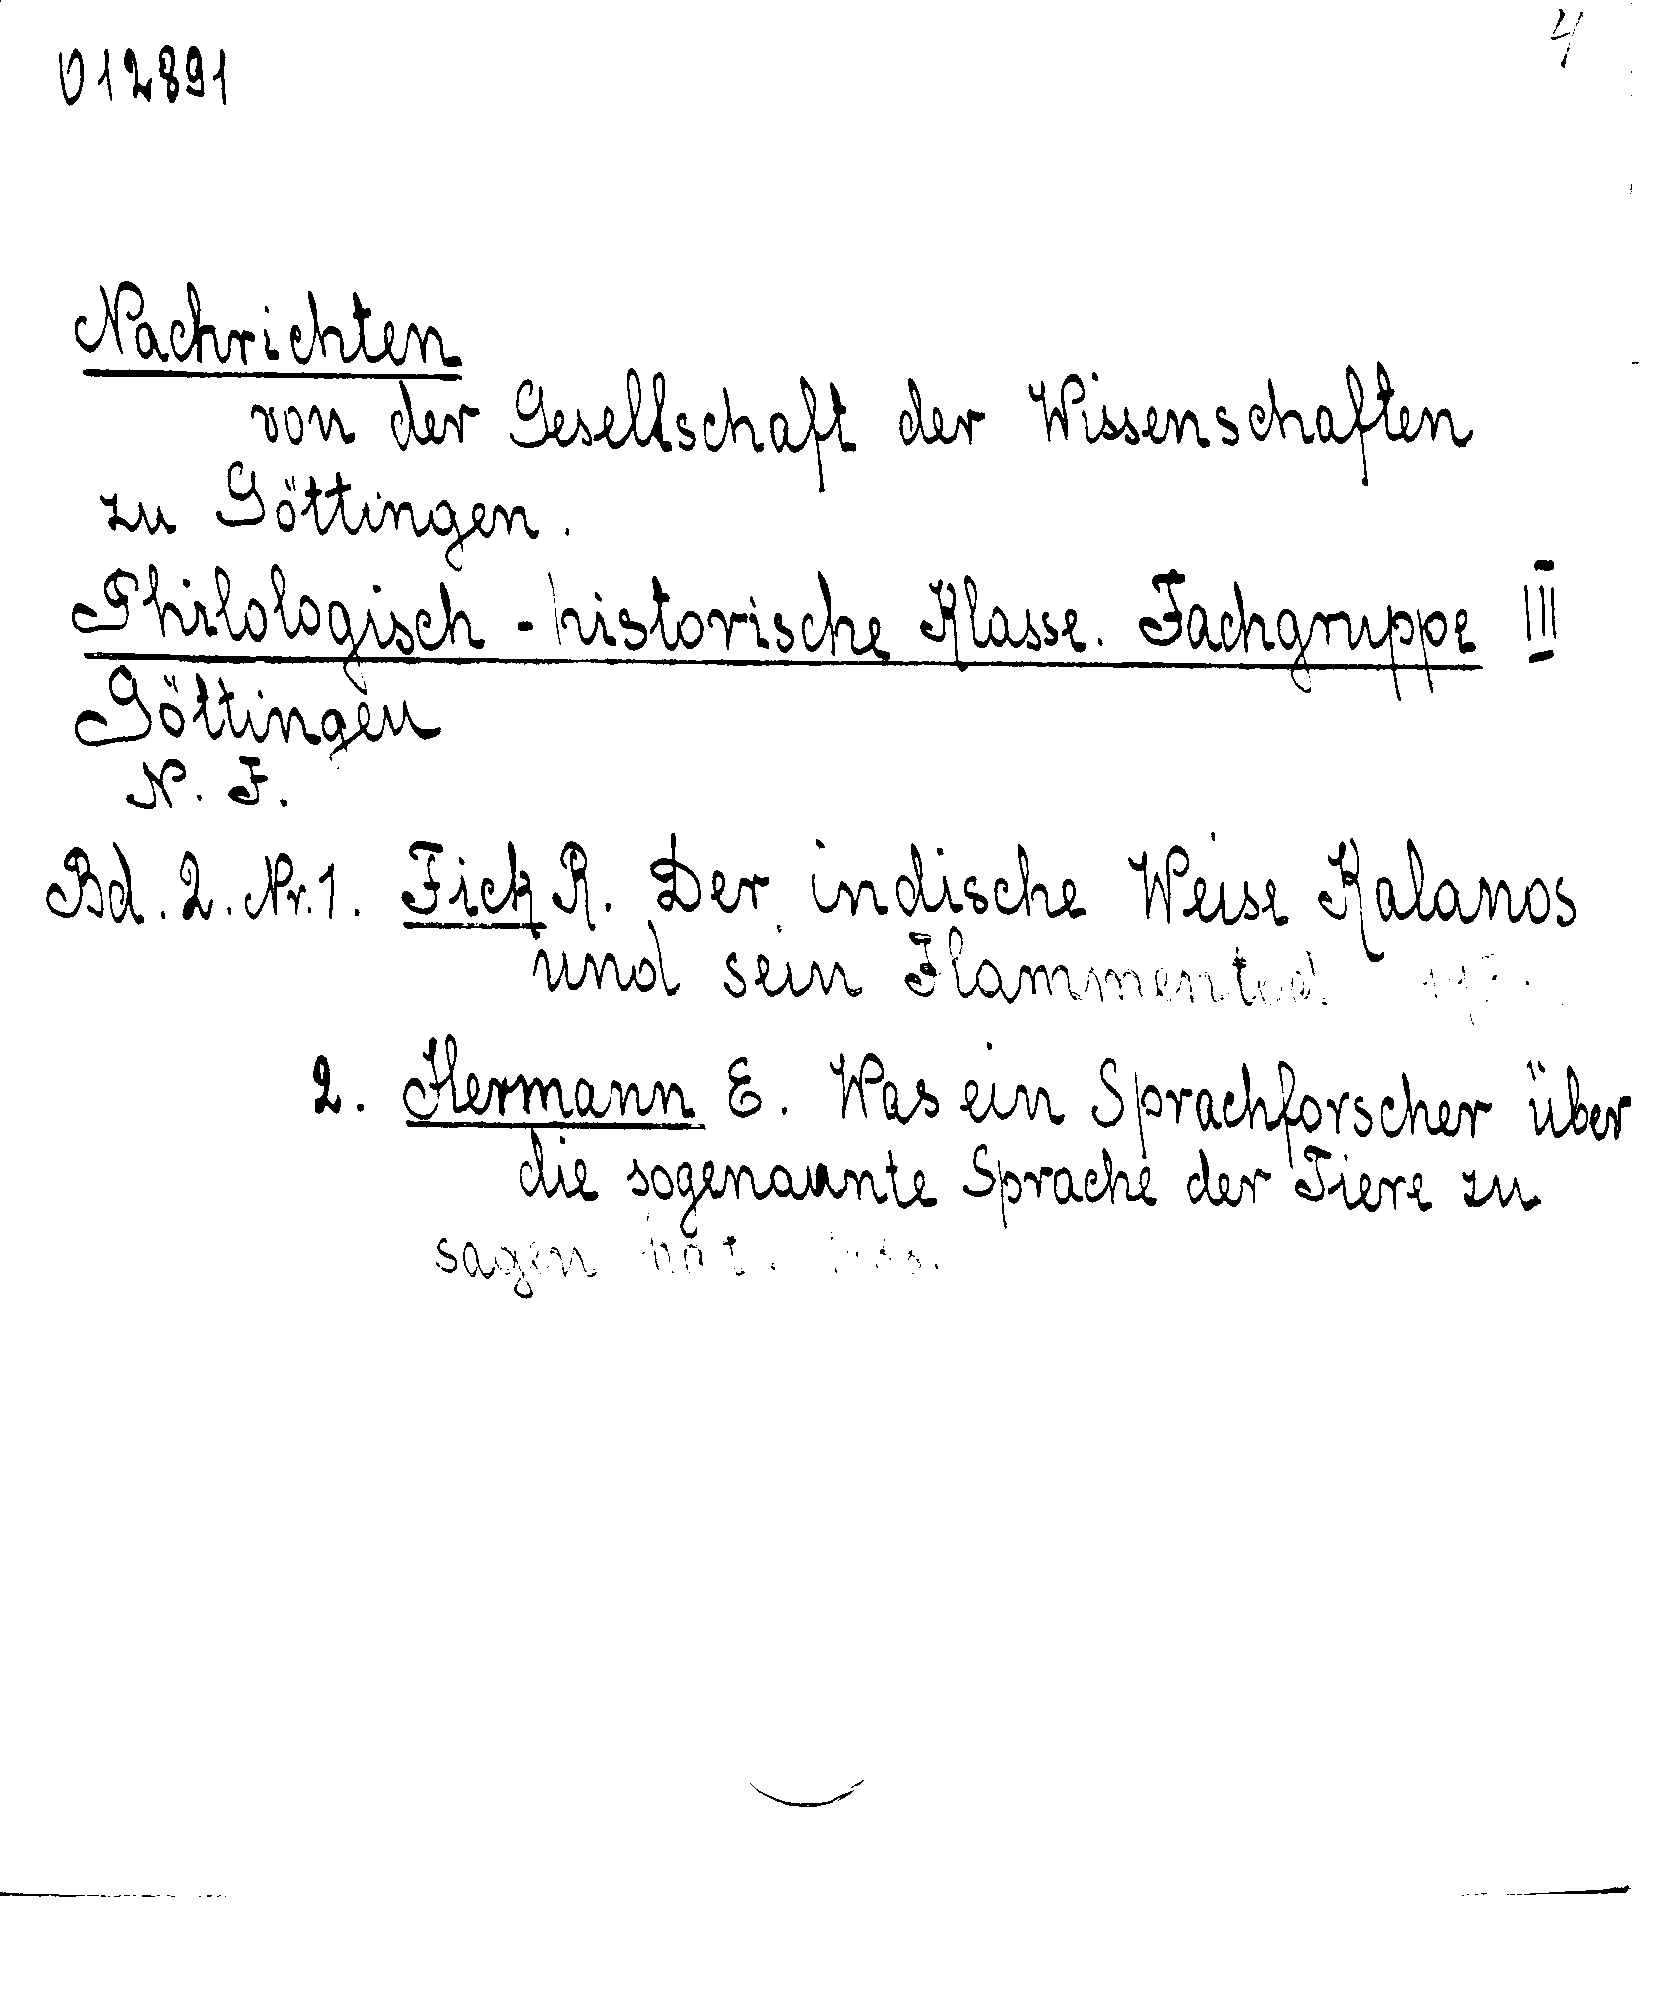 4
012891
Nachrichten
von der Gesellschaft der Wissenschaften
zu Göttingen.
Philologisch-historische Klasse. Fachgruppe III
Göttingen
N. F.
Bd. 2. Nr. 1. Fick R. Der indische Weise Kalanos
und sein Flammentod
2. Hermann E. Was ein Sprachforscher über
die sogenannte Sprache der Tiere zu
sagen hat.